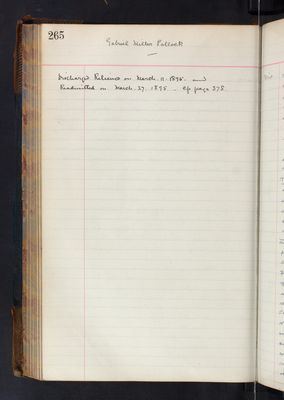 265
Gabriel Miller Pollock
Discharged Relieved on March. 11. 1895. and
Readmitted on March. 27. 1895 -
page 378.